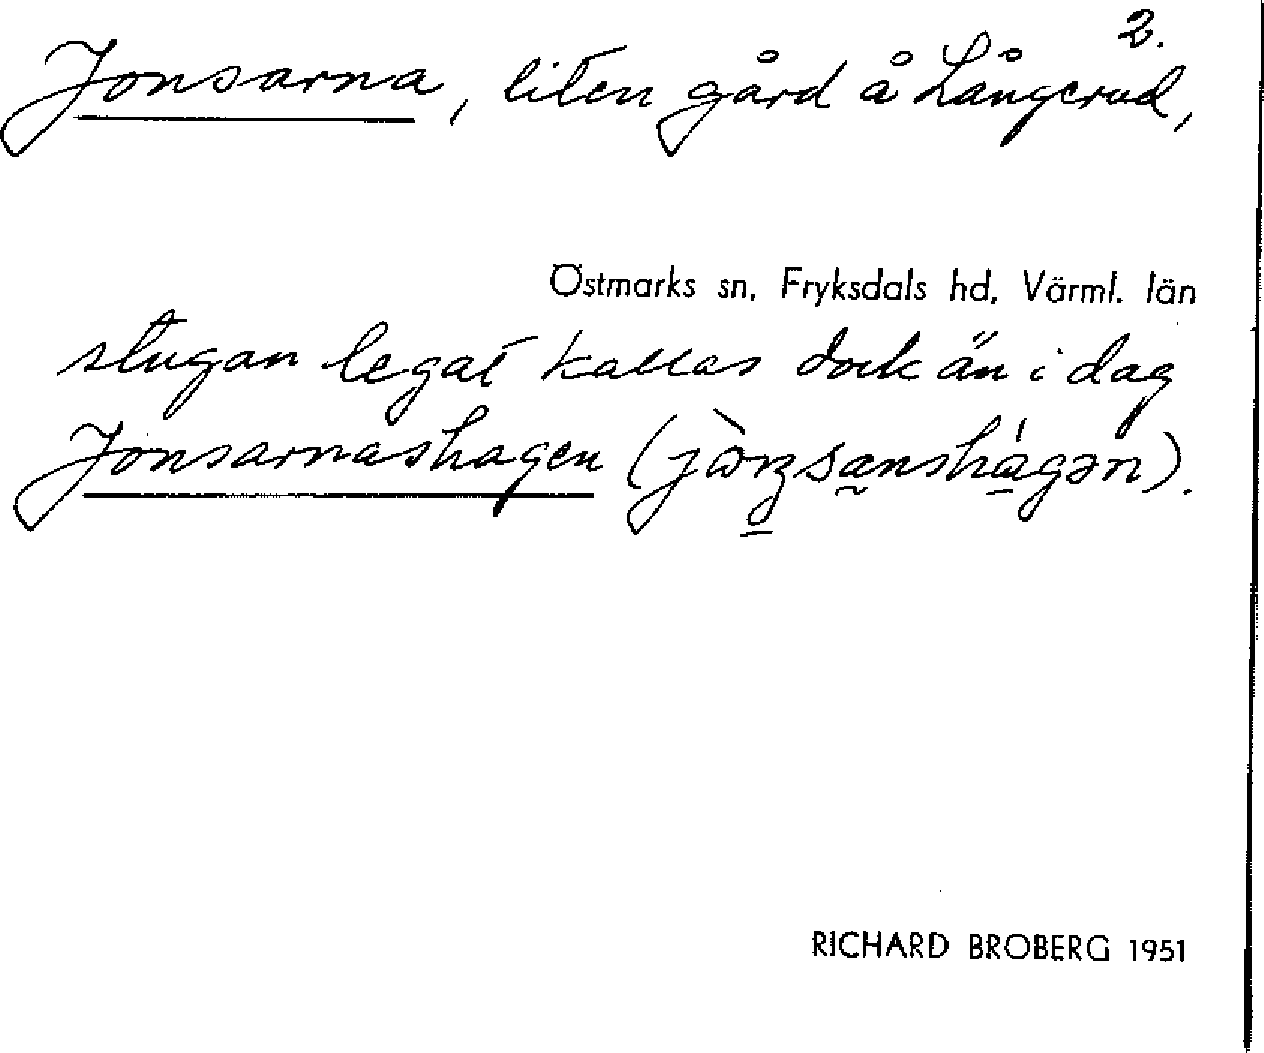 2.
Jonsarna, liten gård å Långerud,
Östmarks sn, Fryksdals hd, Värml. län
stugan legat kallas dock än i dag
Jonsarnashagen
RICHARD BROBERG 1951